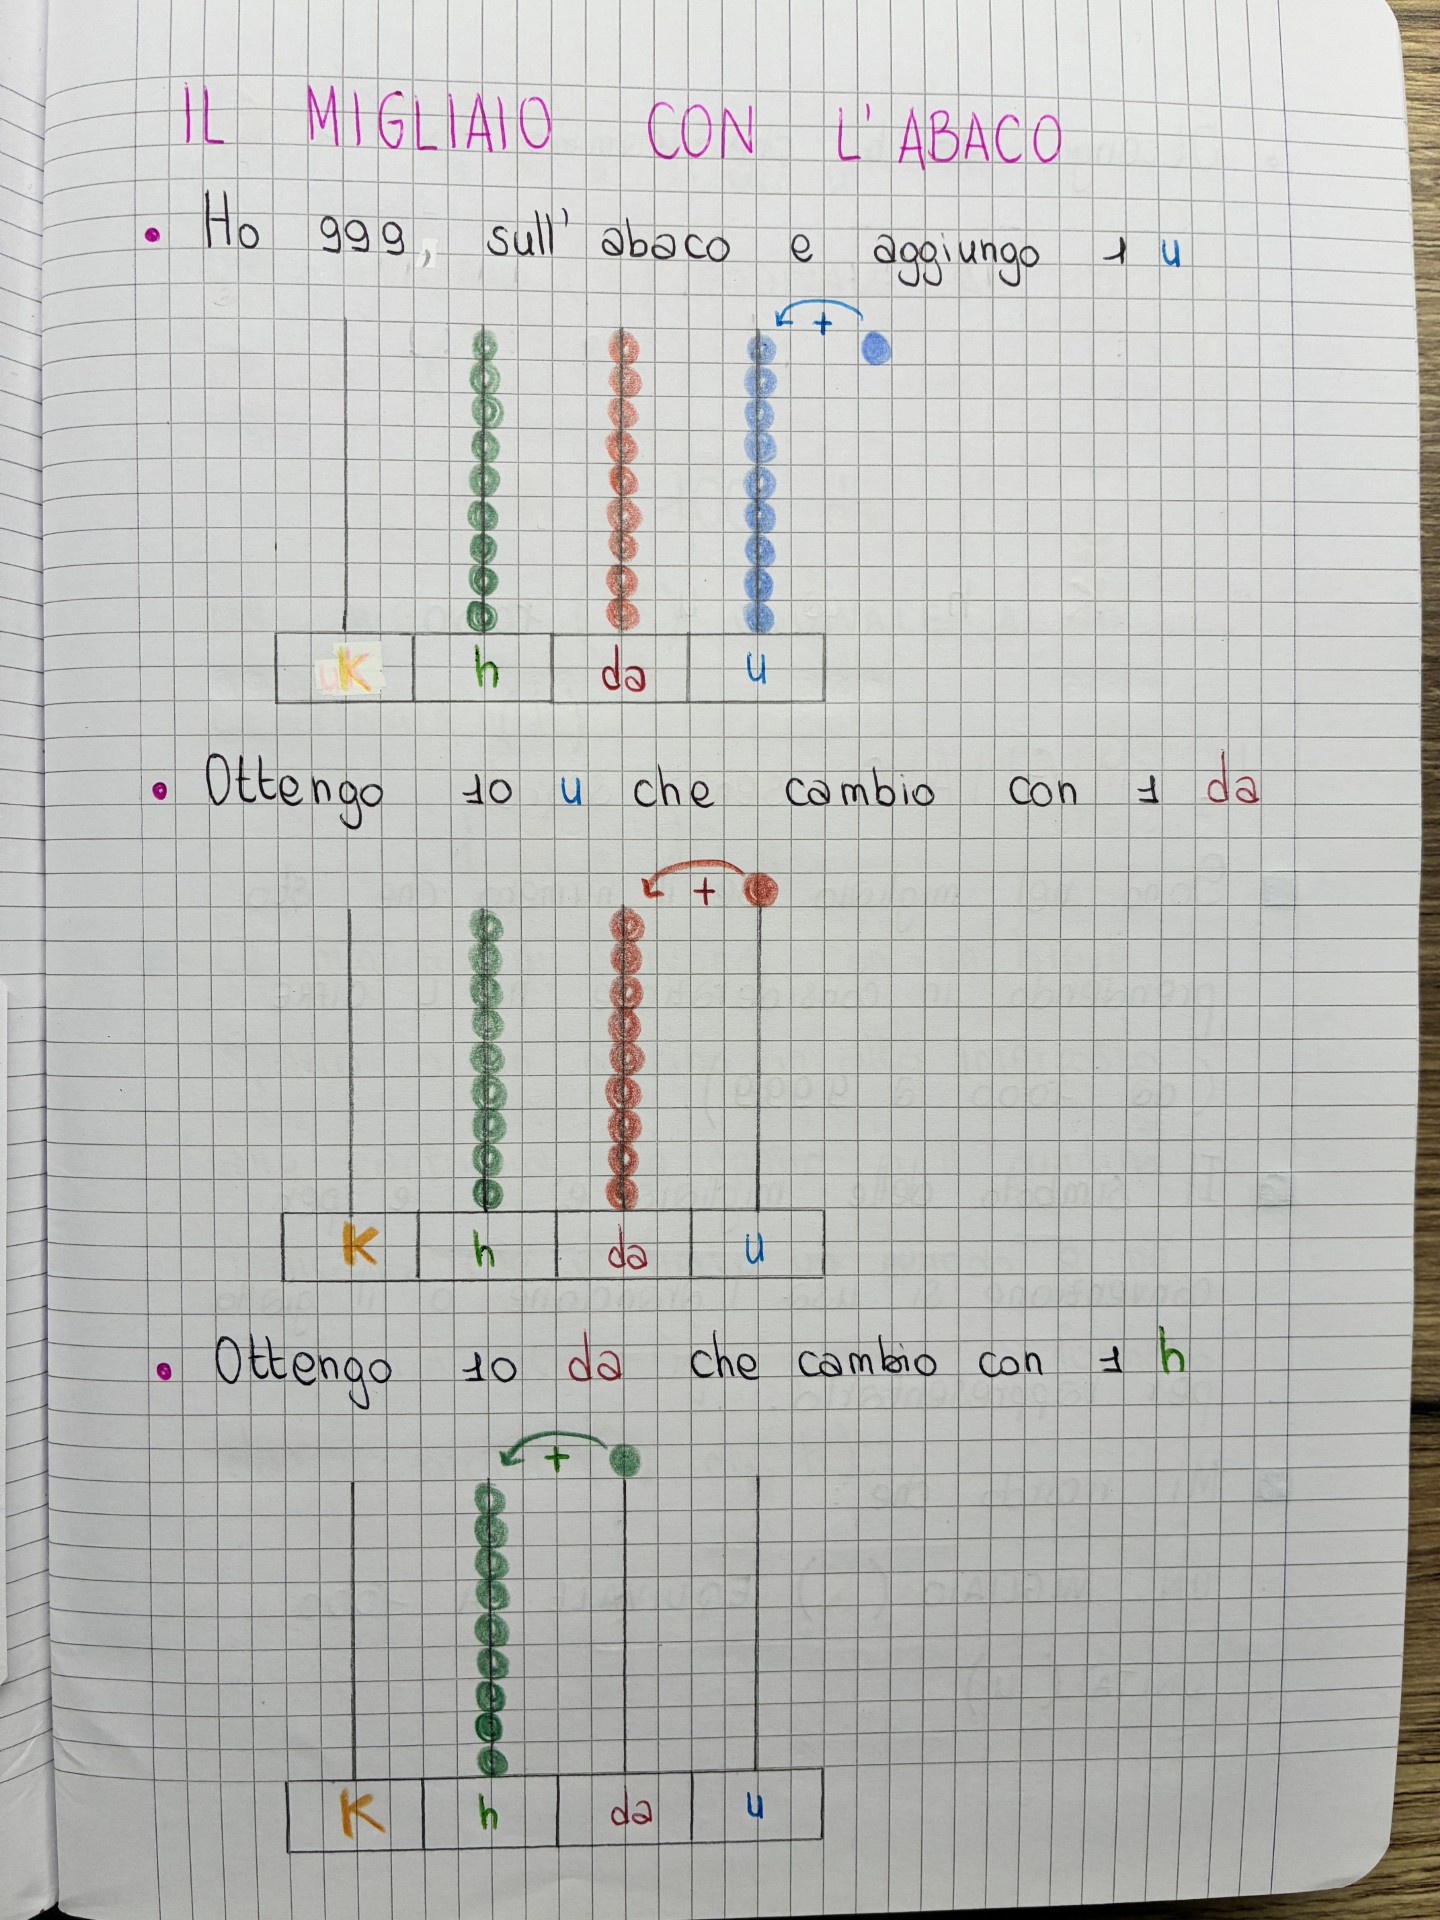 IL MIGLIAIO CON L'ABACO
• Ho 999, sull'abaco e aggiungo 1 u
+
uK h da u
• Ottengo 10 u che cambio con 1 da
+
K h da u
• Ottengo 10 da che cambio con 1 h
+
K h da u